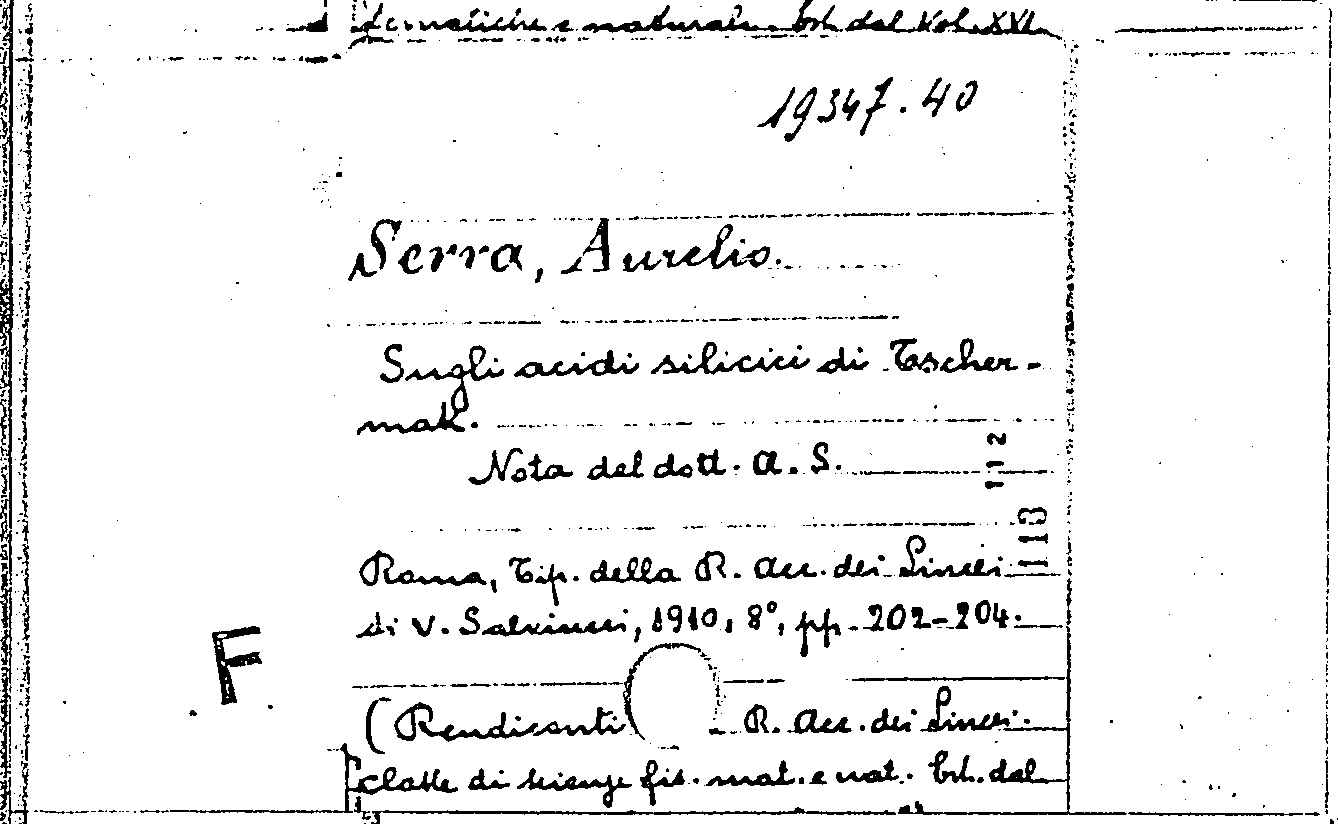 tematiche e naturali. Est. dal Vol. XVI.
19347.40
Serra, Aurelio.
Sugli acidi silicici di Tscher-
mak.
Nota del dott. A. S.
112
113
Roma, Tip. della R. Acc. dei Lincei
di V. Salviucci, 1910, 8°, pp. 202-204.
F
(Rendiconti R. Acc. dei Lincei.
classe di scienze fis. mat. e nat. Est. dal